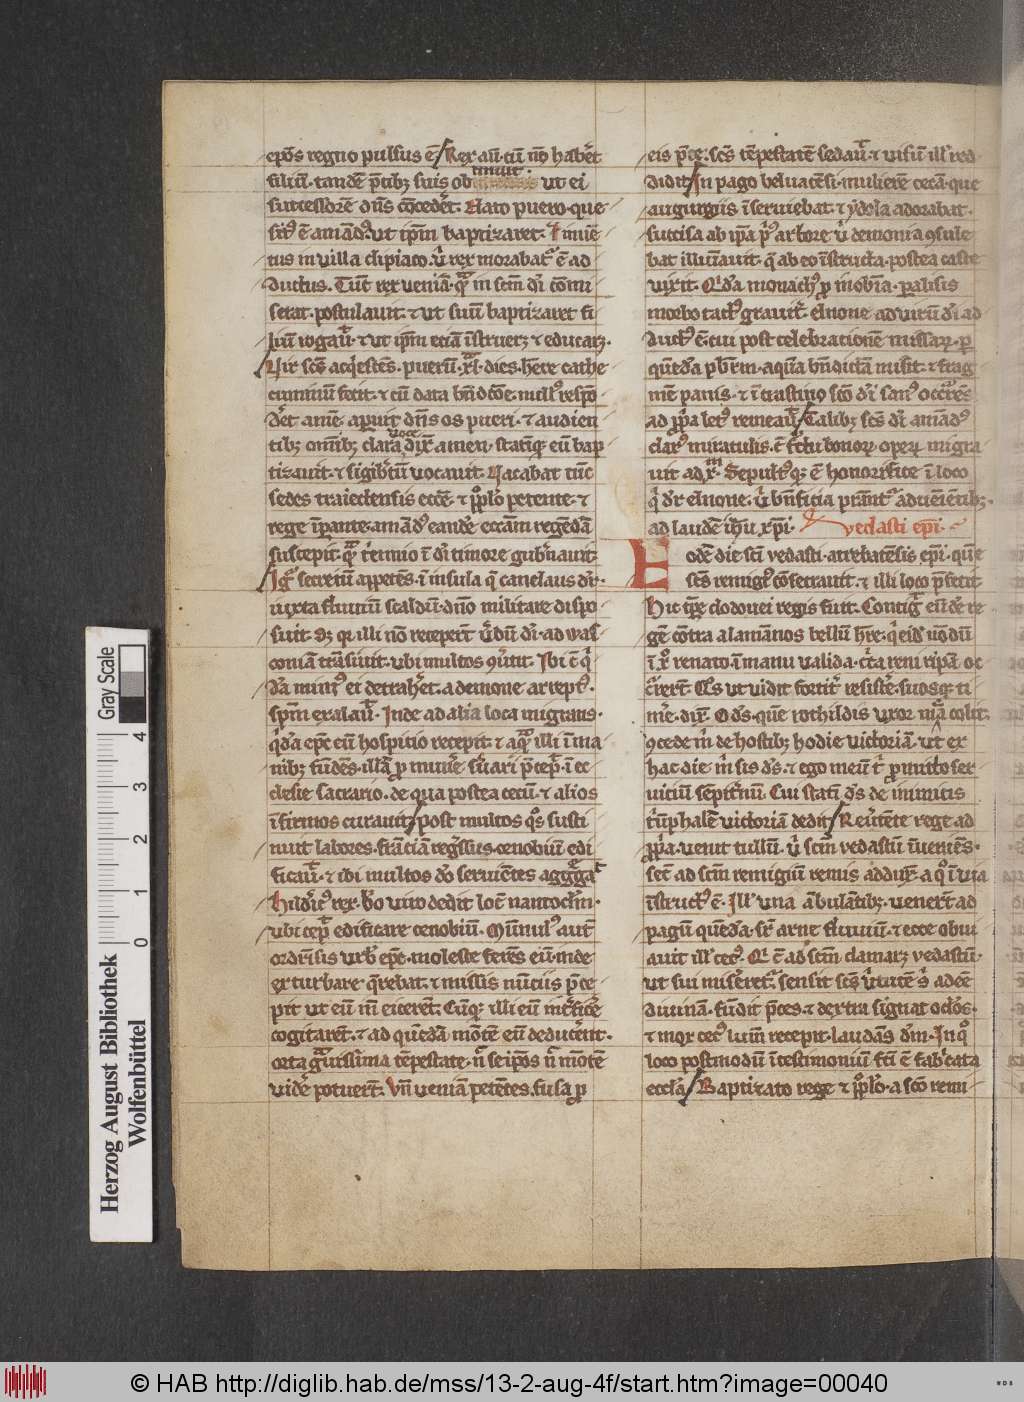 ep̄os regno pulsus ē. Rex aū. cū nō hab'et
filiū. tandē p̄cibꝫ suis obtinuit. ut ei
successorē dn̄s cōcedet. Nato puero. que
ut ip̄m baptizaret. Inuē
tus in villa clipiaco. rex morabat'. ē ad
ductus. Tūc rex veniā. in scm̄ di' cōmi
serat. postulauit. et ut suū baptizaret fi
liū rogau'. et ut ip̄m etiā īstruer& et educar&.
Vir scs̄ acq'escēs. puerū. dies. hēre cathe
cuminū fecit. et cū data bn̄dcōe. null' respō
det amē. apuit dn̄s os pueri. et audien
tibꝫ om̄ibꝫ clara voce dix̄ amen. statīqꝫ eū bap
tizauit. et sigib'tū vocauit. Vacabat tūc
sedes traiectensis eccē. et ppl̄o petente. et
rege īpante. amād' eandē ecc̄am regēdā
suscepit. t'iennio ī di' timore gub'nauit.
secretū appetēs. ī insula q̄ canelaus dr̄.
iuxta fluuiū scaldū. dn̄o militare dispo
suit. Sꝫ qr illi nō receper̄t v'bū di'. ad vas
coniā trāsiuit. ubi multos 9ūtit. Ibi ē q'
dā mim' ei detrahet. a demone arrept'.
spm̄ exalau'. Inde ad alia loca migrans.
q'dā epc̄ eū hospitio recepit. et aquā illi ī ma
nibꝫ fūdēs. illā p munē s'uari p̄cep'. ī ec
clesie sacrario. de qua postea cecū et alios
īfirmos curauit. post multos q's susti
nuit labores. frāciā reg'ssus. cenobiū edi
ficau'. et ibi multos dō seruiētes aggregat.
Hild'ic' rex bō viro dedit locū nantoclm̄.
ubi cep' edificare cenobiū. Mūmul' aut̄
ordr̄isis urb' epc̄. moleste ferēs eū. inde
exturbare. q'rebat. et missis nūciis p̄ce
pit ut eū in eicerēt. Cūqꝫ illi eū int'ficē
cogitarēt. et ad quēdā mōtē eū deducēnt.
orta g'uissima tēpestate. n' seip̄os n' mōtē
vidē potuer̄t. Vn̄ veniā petētes. fusa p
eis p̄ce. scs̄ tēpestatē sedau'. et visū ill' red
didit. In pago beluacēsi. mulierē cecā. que
auguriis īseruiebat. et ydola adorabat.
succisa ab ip̄a p's arbore u' demonia 9sule
bat illuīauit. q̄ ab eo īstructa. postea caste
vixit. Q'dā monach' p īobīa. palisis
morbo tact' grauit'. elnone ad virū di' ad
duct' ē. cui post celebrationē missarꝫ. p
quēdā pb'rm. aquā bn̄dictā misit. et frag
mē panis. et ī crastino scō di' san' occ'rēs
ad ppa let' remeau'. Talibꝫ scs̄ di' amād'
clar' miraculis. ē frētu bonorꝫ operꝫ migra
uit ad x̄m. Sepult'qꝫ ē honorifice ī loco
q' dr̄ elnone. u' bn̄ficia pran̄t' aduēiētibꝫ.
ad laudē ih̄u xp̄i. vedasti ep̄i.
Eodē die sc̄i vedasti. atrebatēsis ep̄i. quē
scs̄ remigi' cōsecrauit. et illi loco p̄fecit
Hic tp̄e clodouei regis fuit. Contig' eū dē re
gē cōtra alamānos bellū hr̄e. q' eidē nōdū
ī x̄o renato ī manu valida. c'ca reni ripā oc
c'rer̄t. Q's ut vidit fortit' resistē. suosqꝫ ti
mē. dix̄. Ds̄. quē rothildis uxor mea colit.
9cede m̄ de hostibꝫ hodie victoriā. ut ex
hac die m̄ sis ds̄. et ego meū t' pmitto ser
uiciū sēpit'nū. Cui statī ds̄ de inimicis
t'ūphalē victoriā dedit. Reu'tēte rege ad
ppa. venit tullū. u' scm̄ vedastū īueniēs.
sec̄ ad scm̄ remigiū remis addux̄. a q° ī via
īstruct' ē. Ill' una ābulātibꝫ. vener̄t ad
pagū quēdā. sr̄ arne fluuiū. et ecce obui
auit ill' cec'. Q' ē ad scm̄ clamar& vedastū.
ut sui miseret'. sensit scs̄ v'tutē s' adeē
diuinā. fūdit p̄ces. et dextra signat oclōs.
et mox cec' lum̄ recepit. laudās dm̄. In q°
loco postmodū ī testimoniū fc̄i ē fab'cata
eccl̄a. Baptizato rege et ppl̄o. a scō remi
Herzog August Bibliothek
Wolfenbüttel
0 1 2 3 4
Gray Scale
© HAB http://diglib.hab.de/mss/13-2-aug-4f/start.htm?image=00040